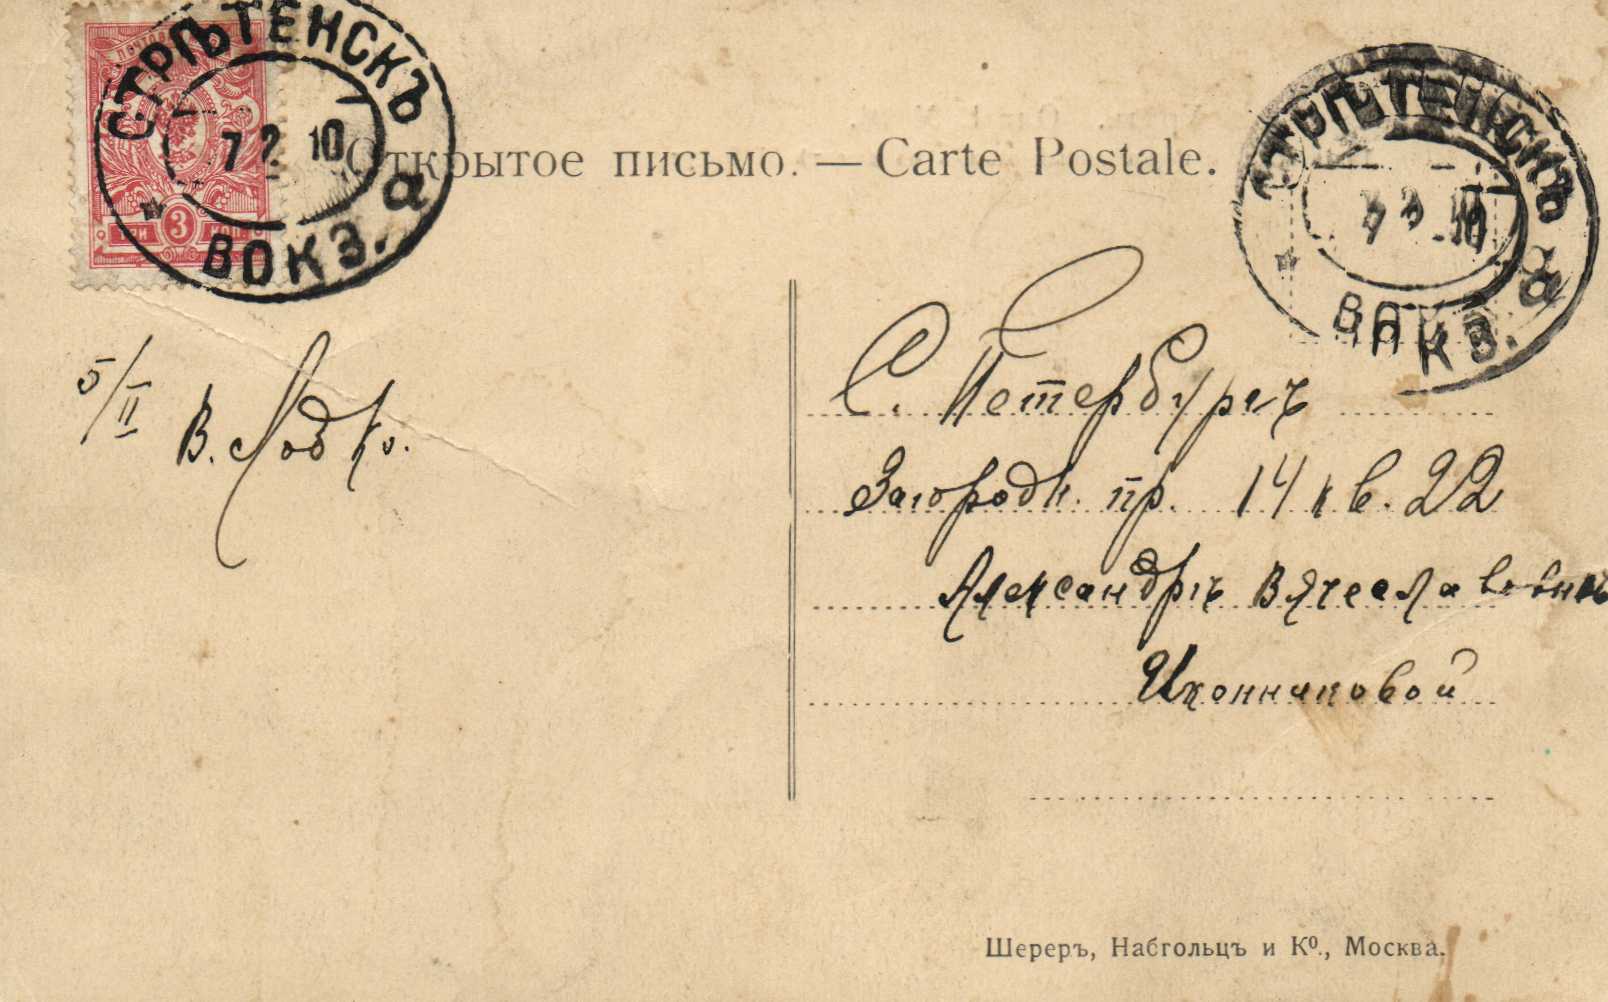 СТРѢТЕНСКЪ
7 2 10
ВОКЗ. а
ТРИ 3 КОП.
Открытое письмо. — Carte Postale.
СТРѢТЕНСКЪ
7 2 10
ВОКЗ. а
5/II
С. Петербургъ
Загородн. пр. 14 кв. 22
Александрѣ Вячеславовнѣ
Иконниковой
Шереръ, Набгольцъ и Кº., Москва.